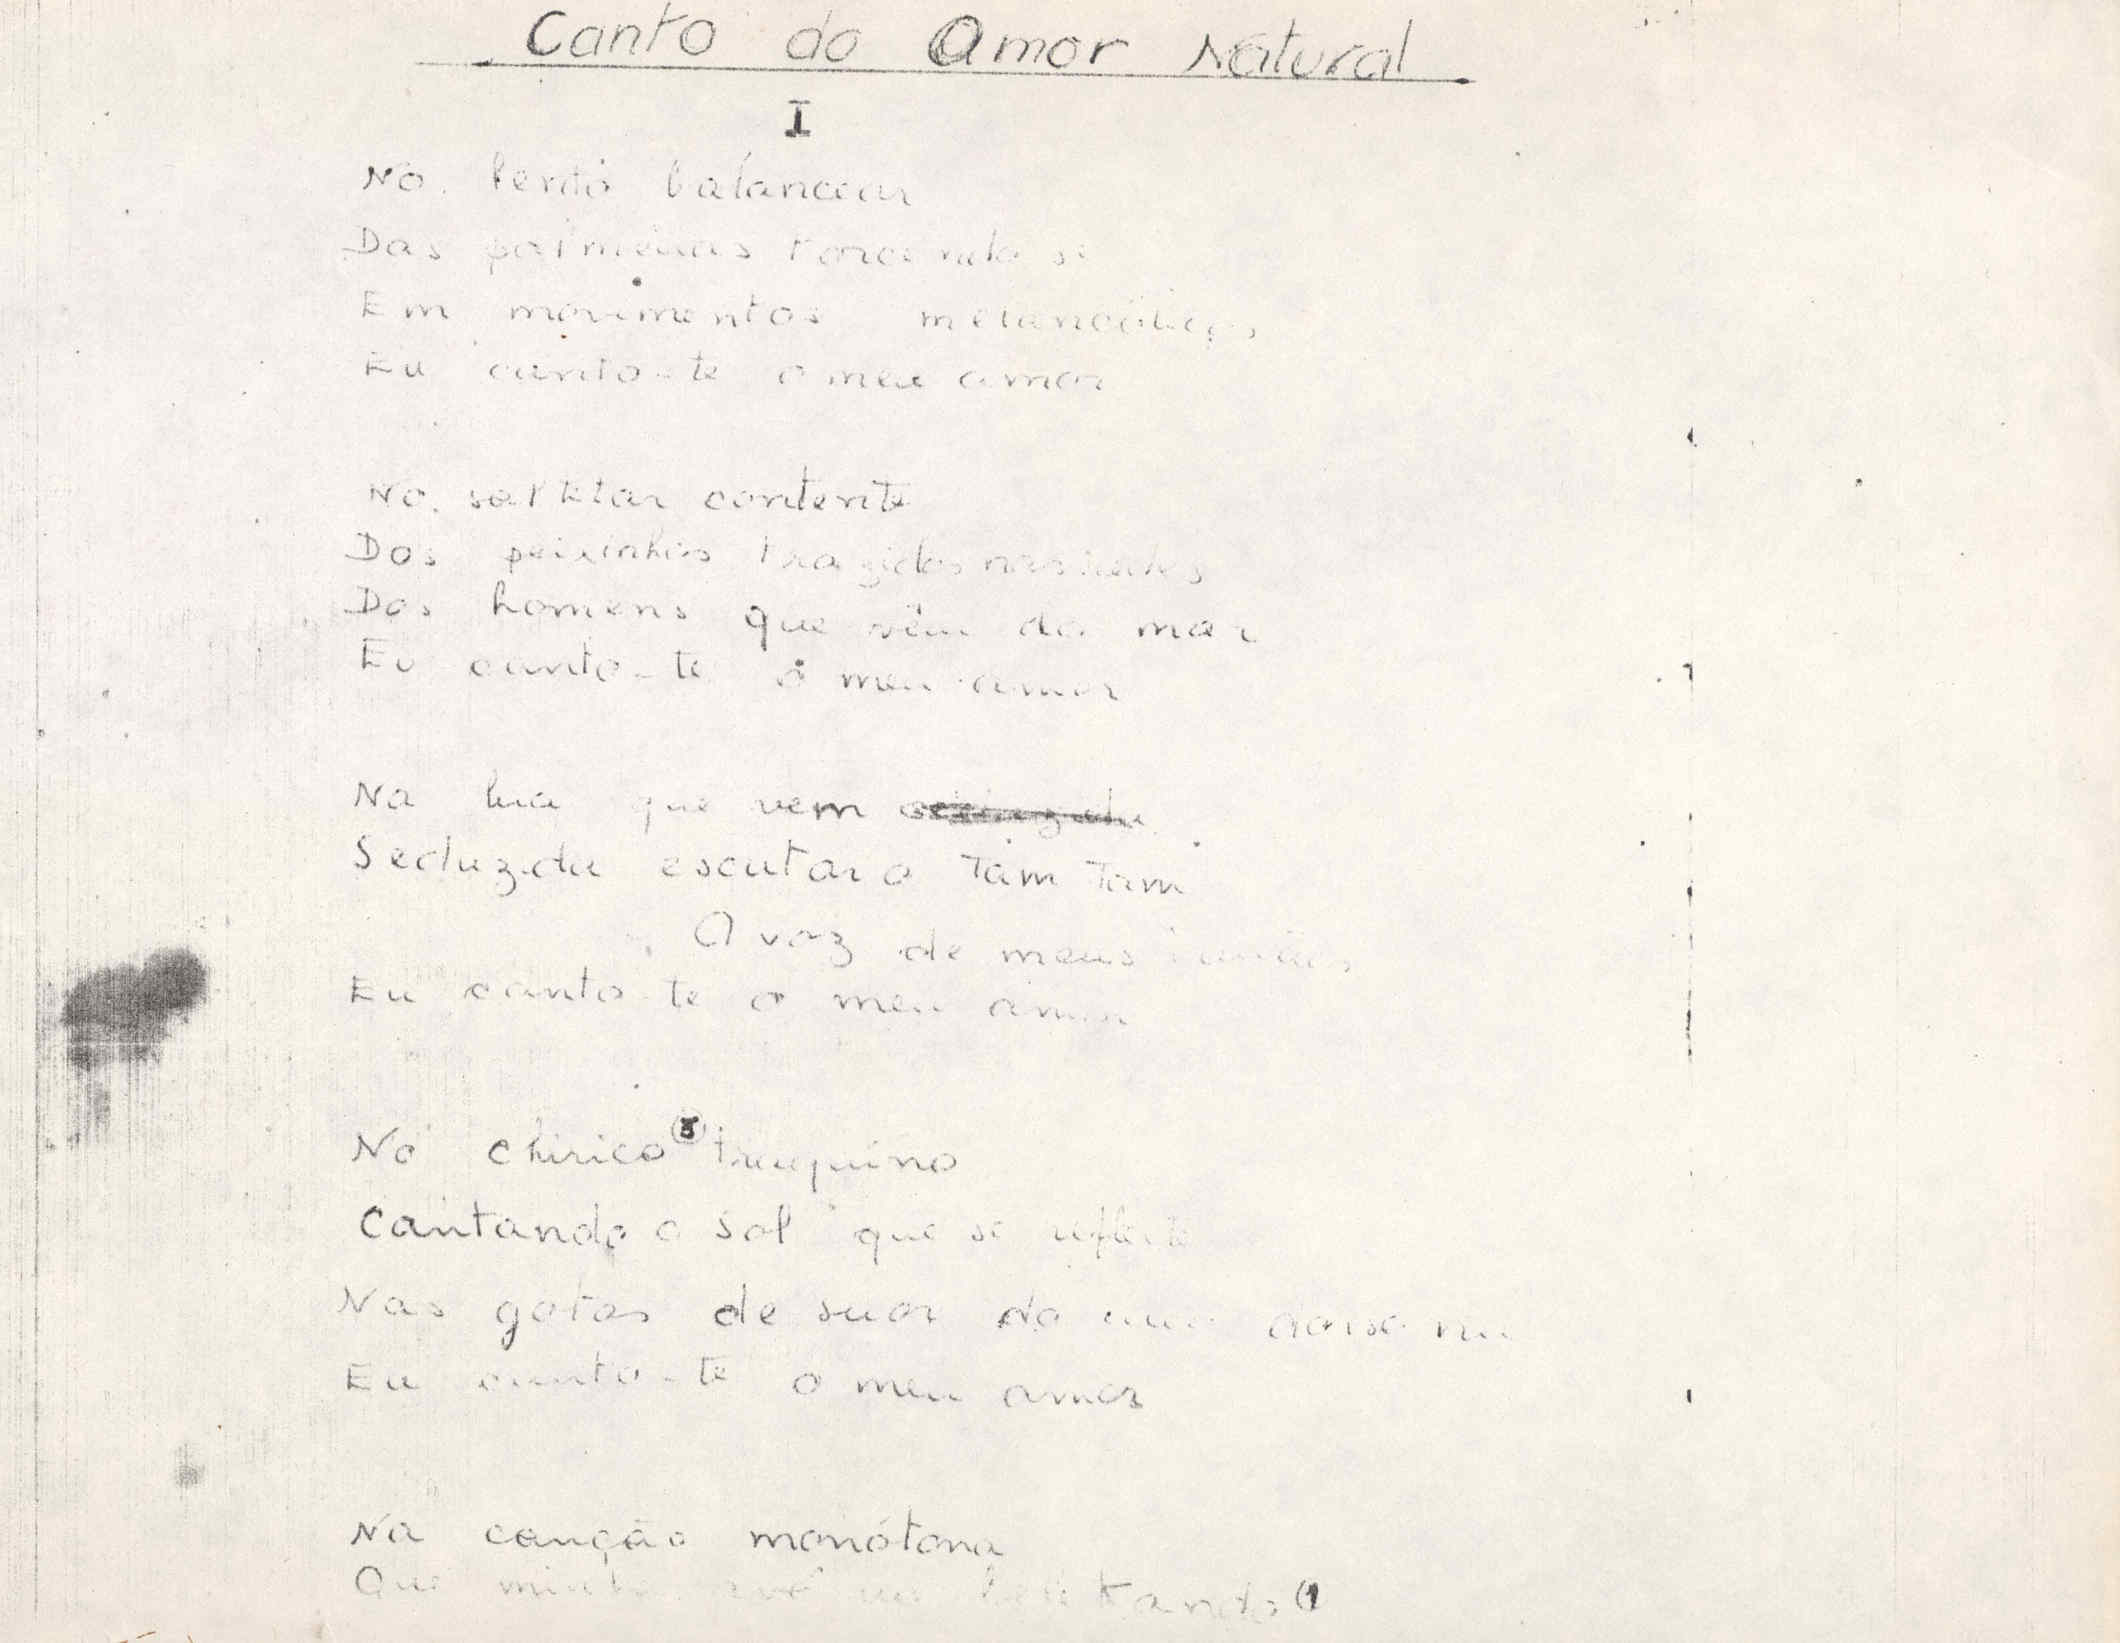 Canto do Amor Natural
I
No lento balancear
Das palmeiras torcendo se
Em movimentos melancólicos
Eu canto-te o meu amor
No saltitar contente
Dos peixinhos trazidos nas redes
Dos homens que vêm do mar
Eu canto-te o meu amor
Na lua que vem
Seduzida escutar o Tam Tam
A voz de meus irmãos
Eu canto-te o meu amor
No chirico traquino
Cantando o sol que se reflecte
Nas gotas de suor do meu dorso nu
Eu canto-te o meu amor
Na canção monótona
Que minha